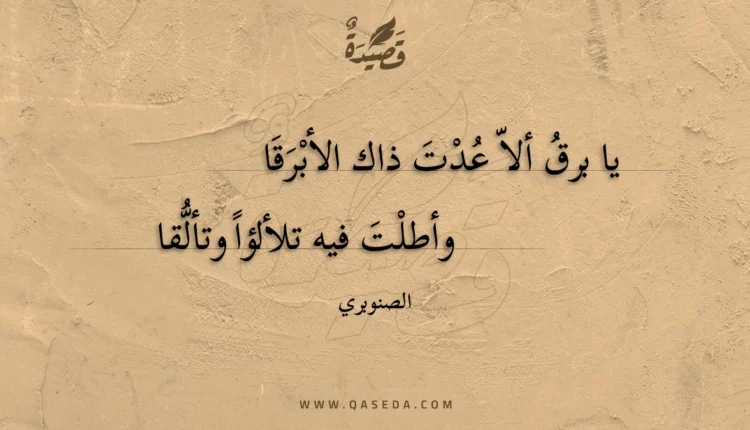 قَصِيْدَةٌ
يا برقُ ألاّ عُدْتَ ذاك الأبْرَقَا
وأطلْتَ فيه تلألؤاً وتألُّقا
الصنوبري
WWW.QASEDA.COM